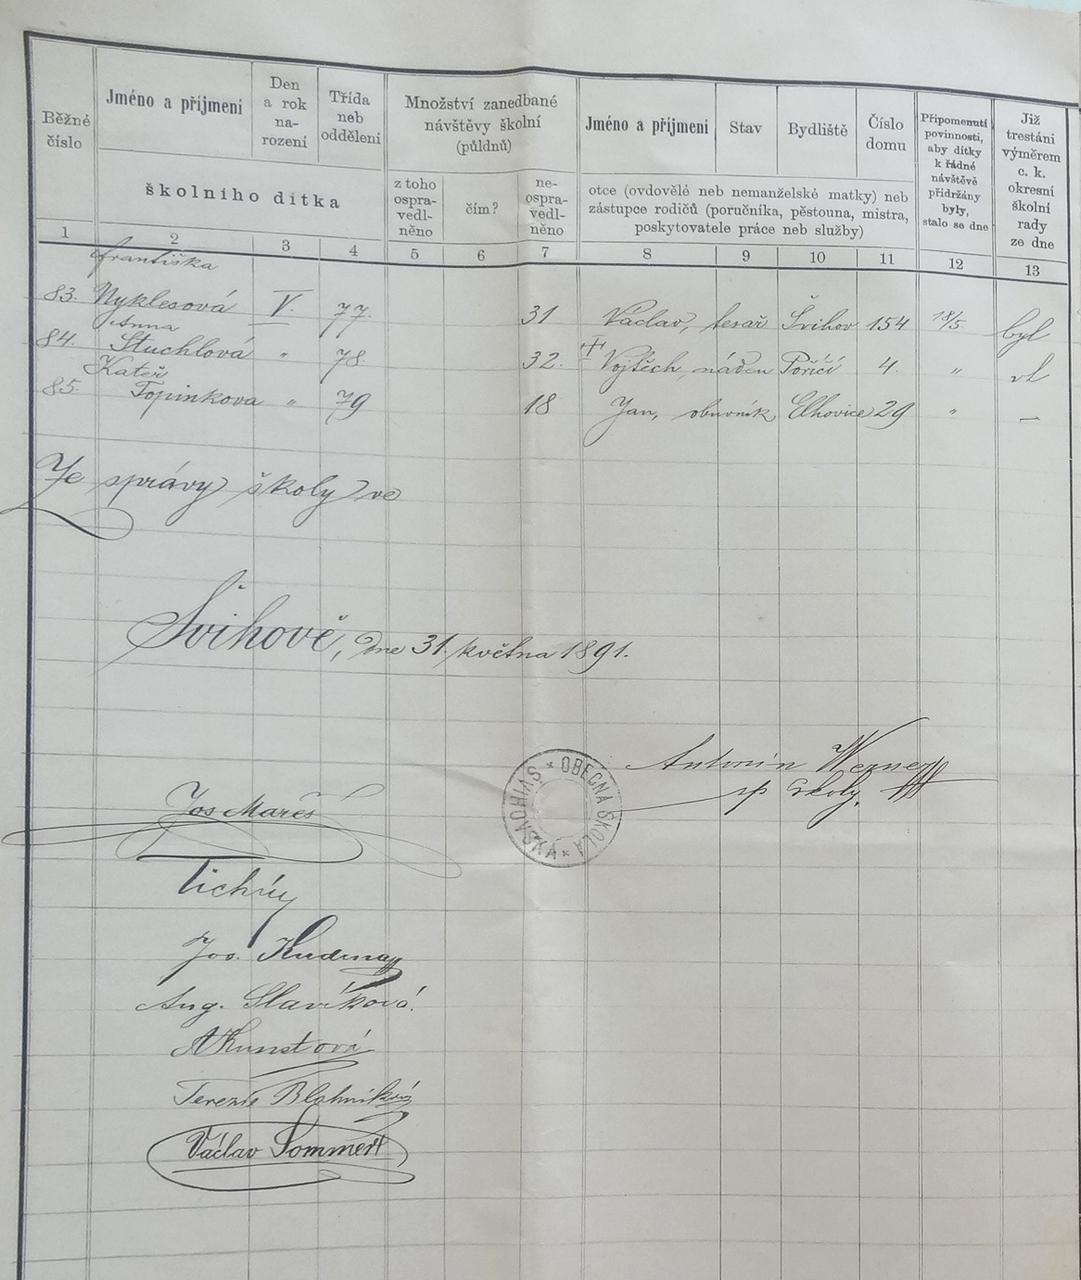 Běžné číslo
Jméno a příjmení
školního dítka
Den a rok na-rození
Třída neb oddělení
Množství zanedbané návštěvy školní (půldnů)
z toho ospra-vedl-něno
čím?
ne-ospra-vedl-něno
Jméno a příjmení
Stav
Bydliště
Číslo domu
otce (ovdovělé neb nemanželské matky) neb
zástupce rodičů (poručníka, pěstouna, mistra,
poskytovatele práce neb služby)
Připomenutí povinnosti, aby dítky k řádné návštěvě přidržány byly, stalo se dne
Již trestáni výměrem c. k. okresní školní rady ze dne
1 2 3 4 5 6 7 8 9 10 11 12 13
Františka
83. Nyklesová V. 77. 31 Václav, tesař Švihov 154 18/5. byl
Anna
84. Stuchlová " 78 32. + Vojtěch, náden Poříčí 4. "
Kateř
85. Topinkova " 79 18 Jan, obuvník Elhovice 29 " —
Ze správy školy ve
Švihově, dne 31. května 1891.
Antonín
sp školy.
VYSADHIAS * OBECNÁ ŠKOLA *
Jos Mareš
Tichý
Jos.
Aug. Slavíková.
AKunstová
Terezie Blahníková
Václav Sommert